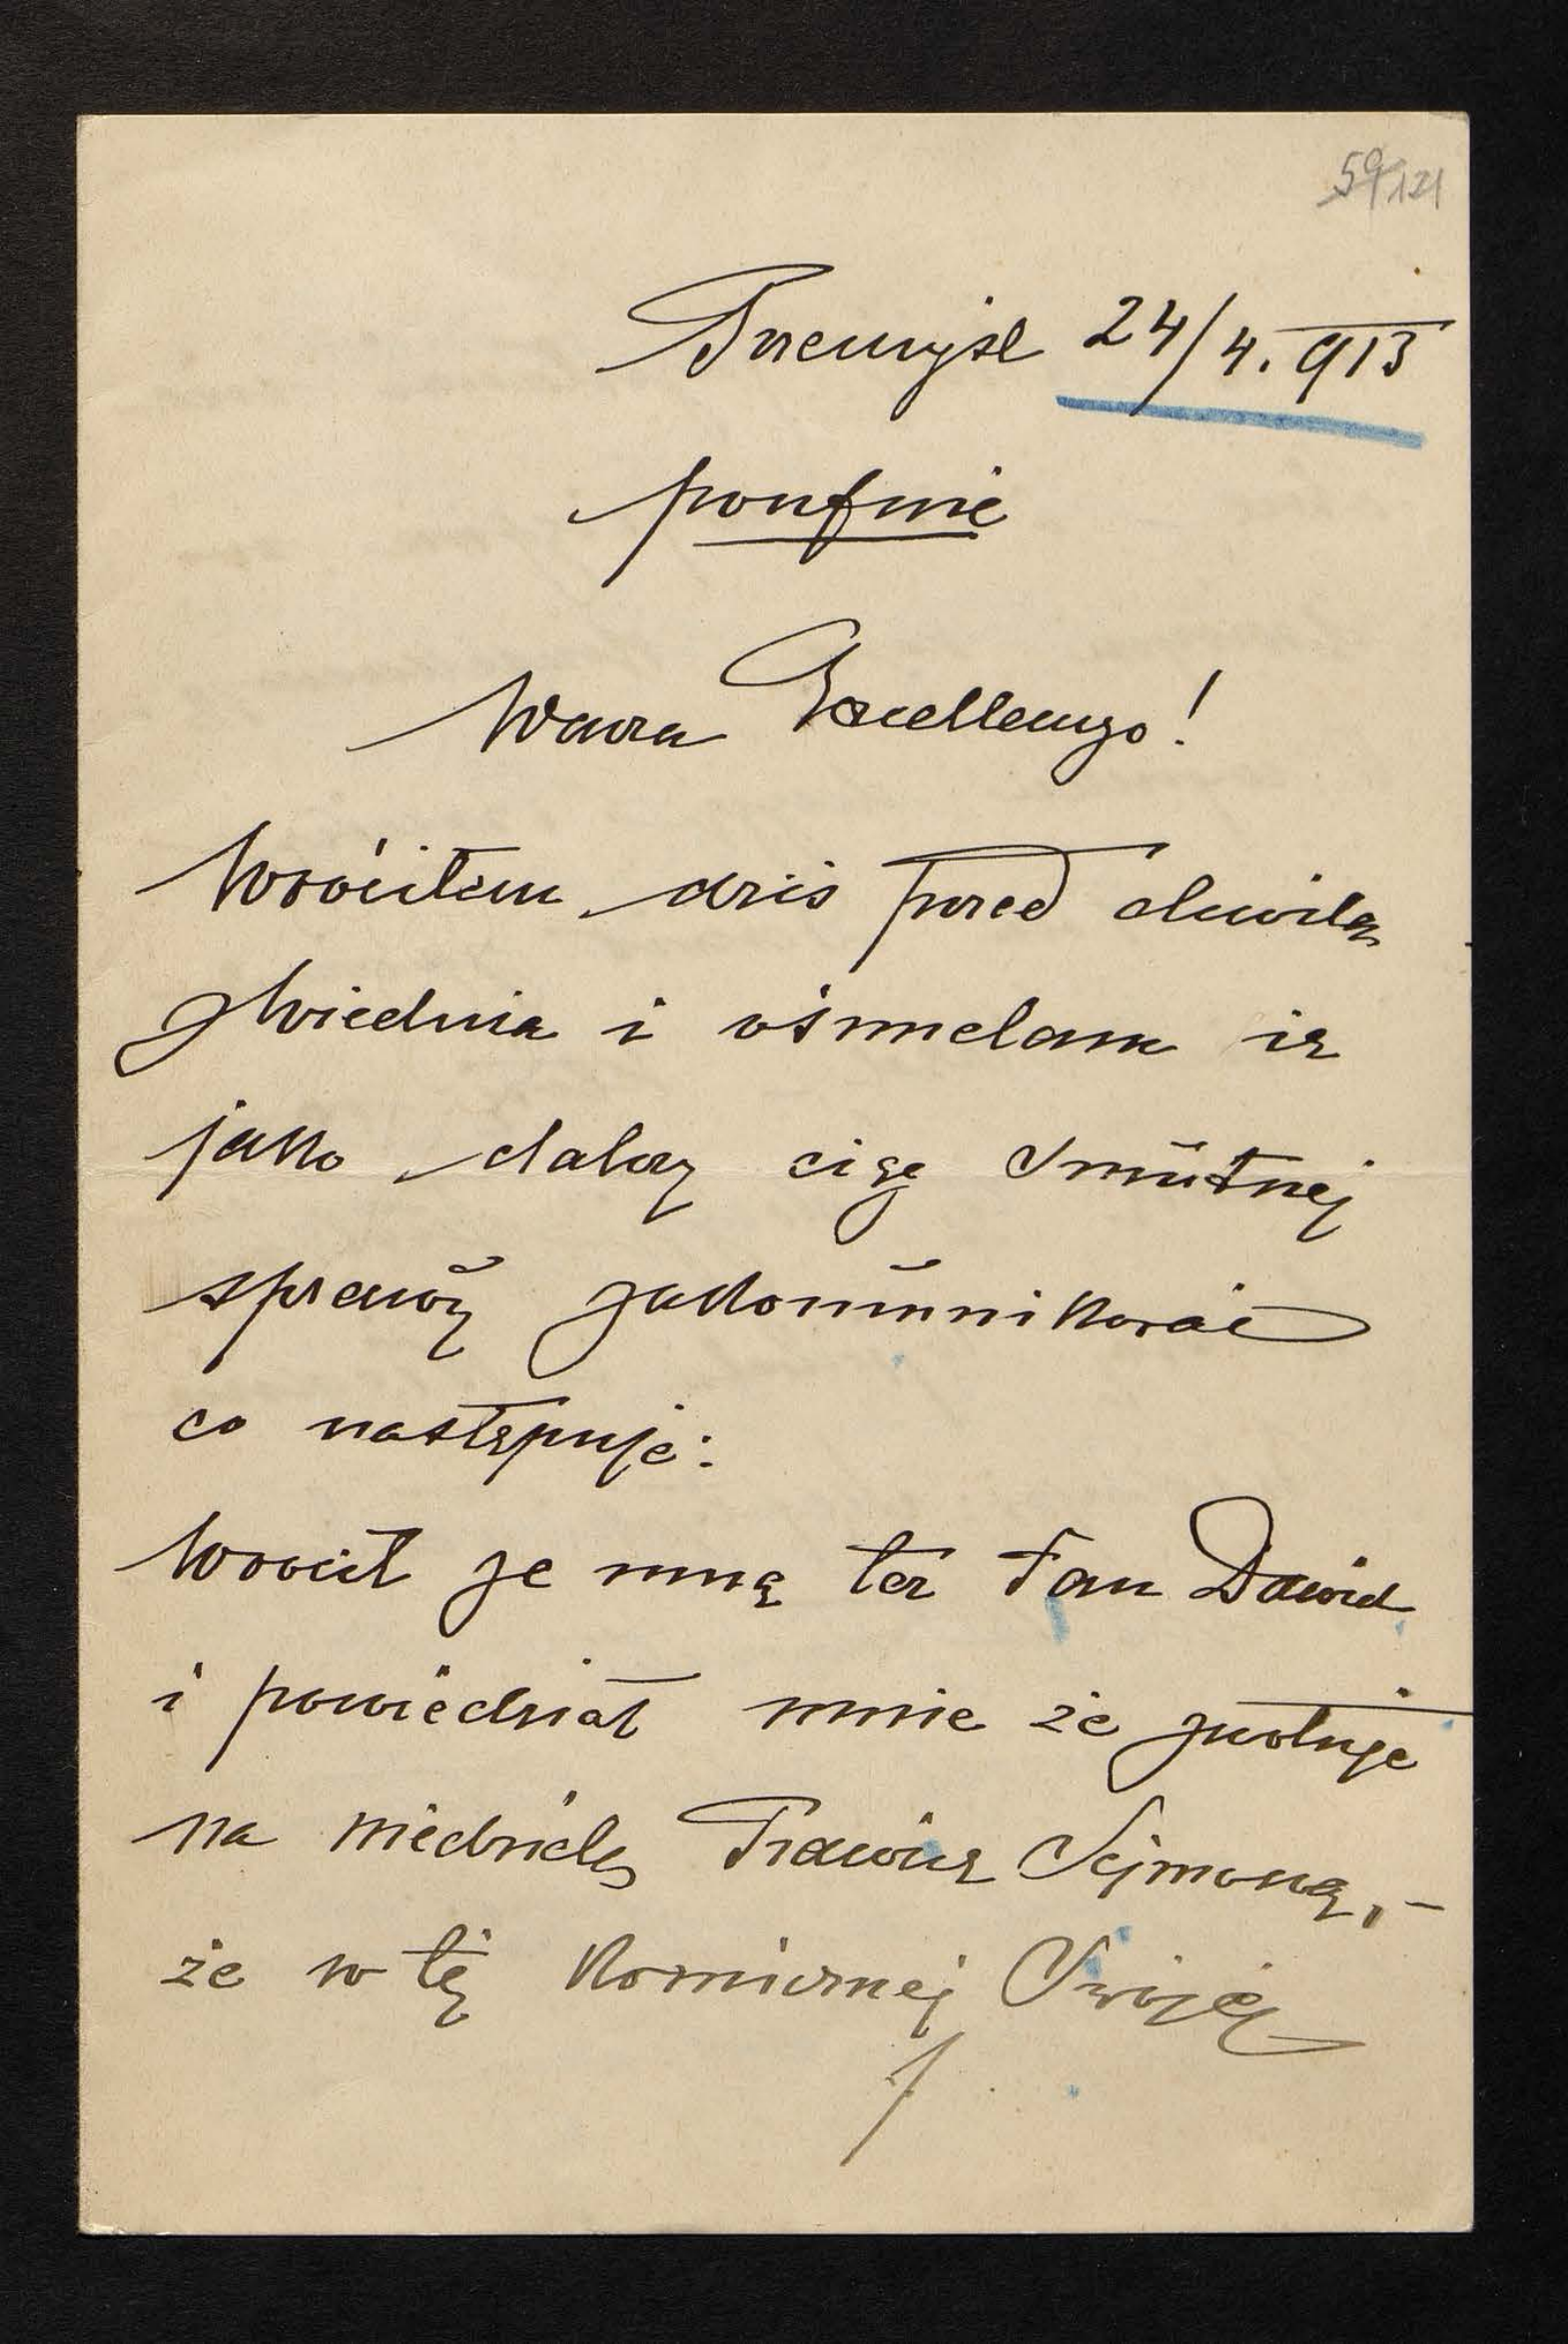 59/121
Przemyśl 24/4. 913
poufnie
Wasza Excellencyo!
Wróciłem dziś przed chwilą
z Wiednia i ośmielam się
jako dalszy ciąg smutnej
sprawy zakomunikować
co następuje:
Wrócił ze mną też Pan Dawid
i powiedział mnie że zwołuje
na niedzielę Prawicę Sejmową, –
że w tej komicznej Swojej